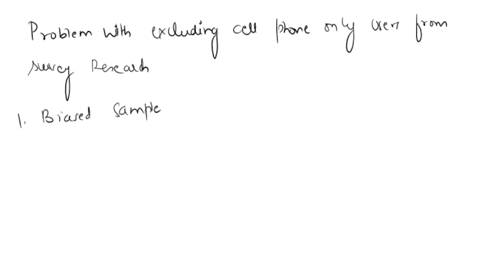 Problem with excluding cell phone only users from
survey Research
1. Biased Sample